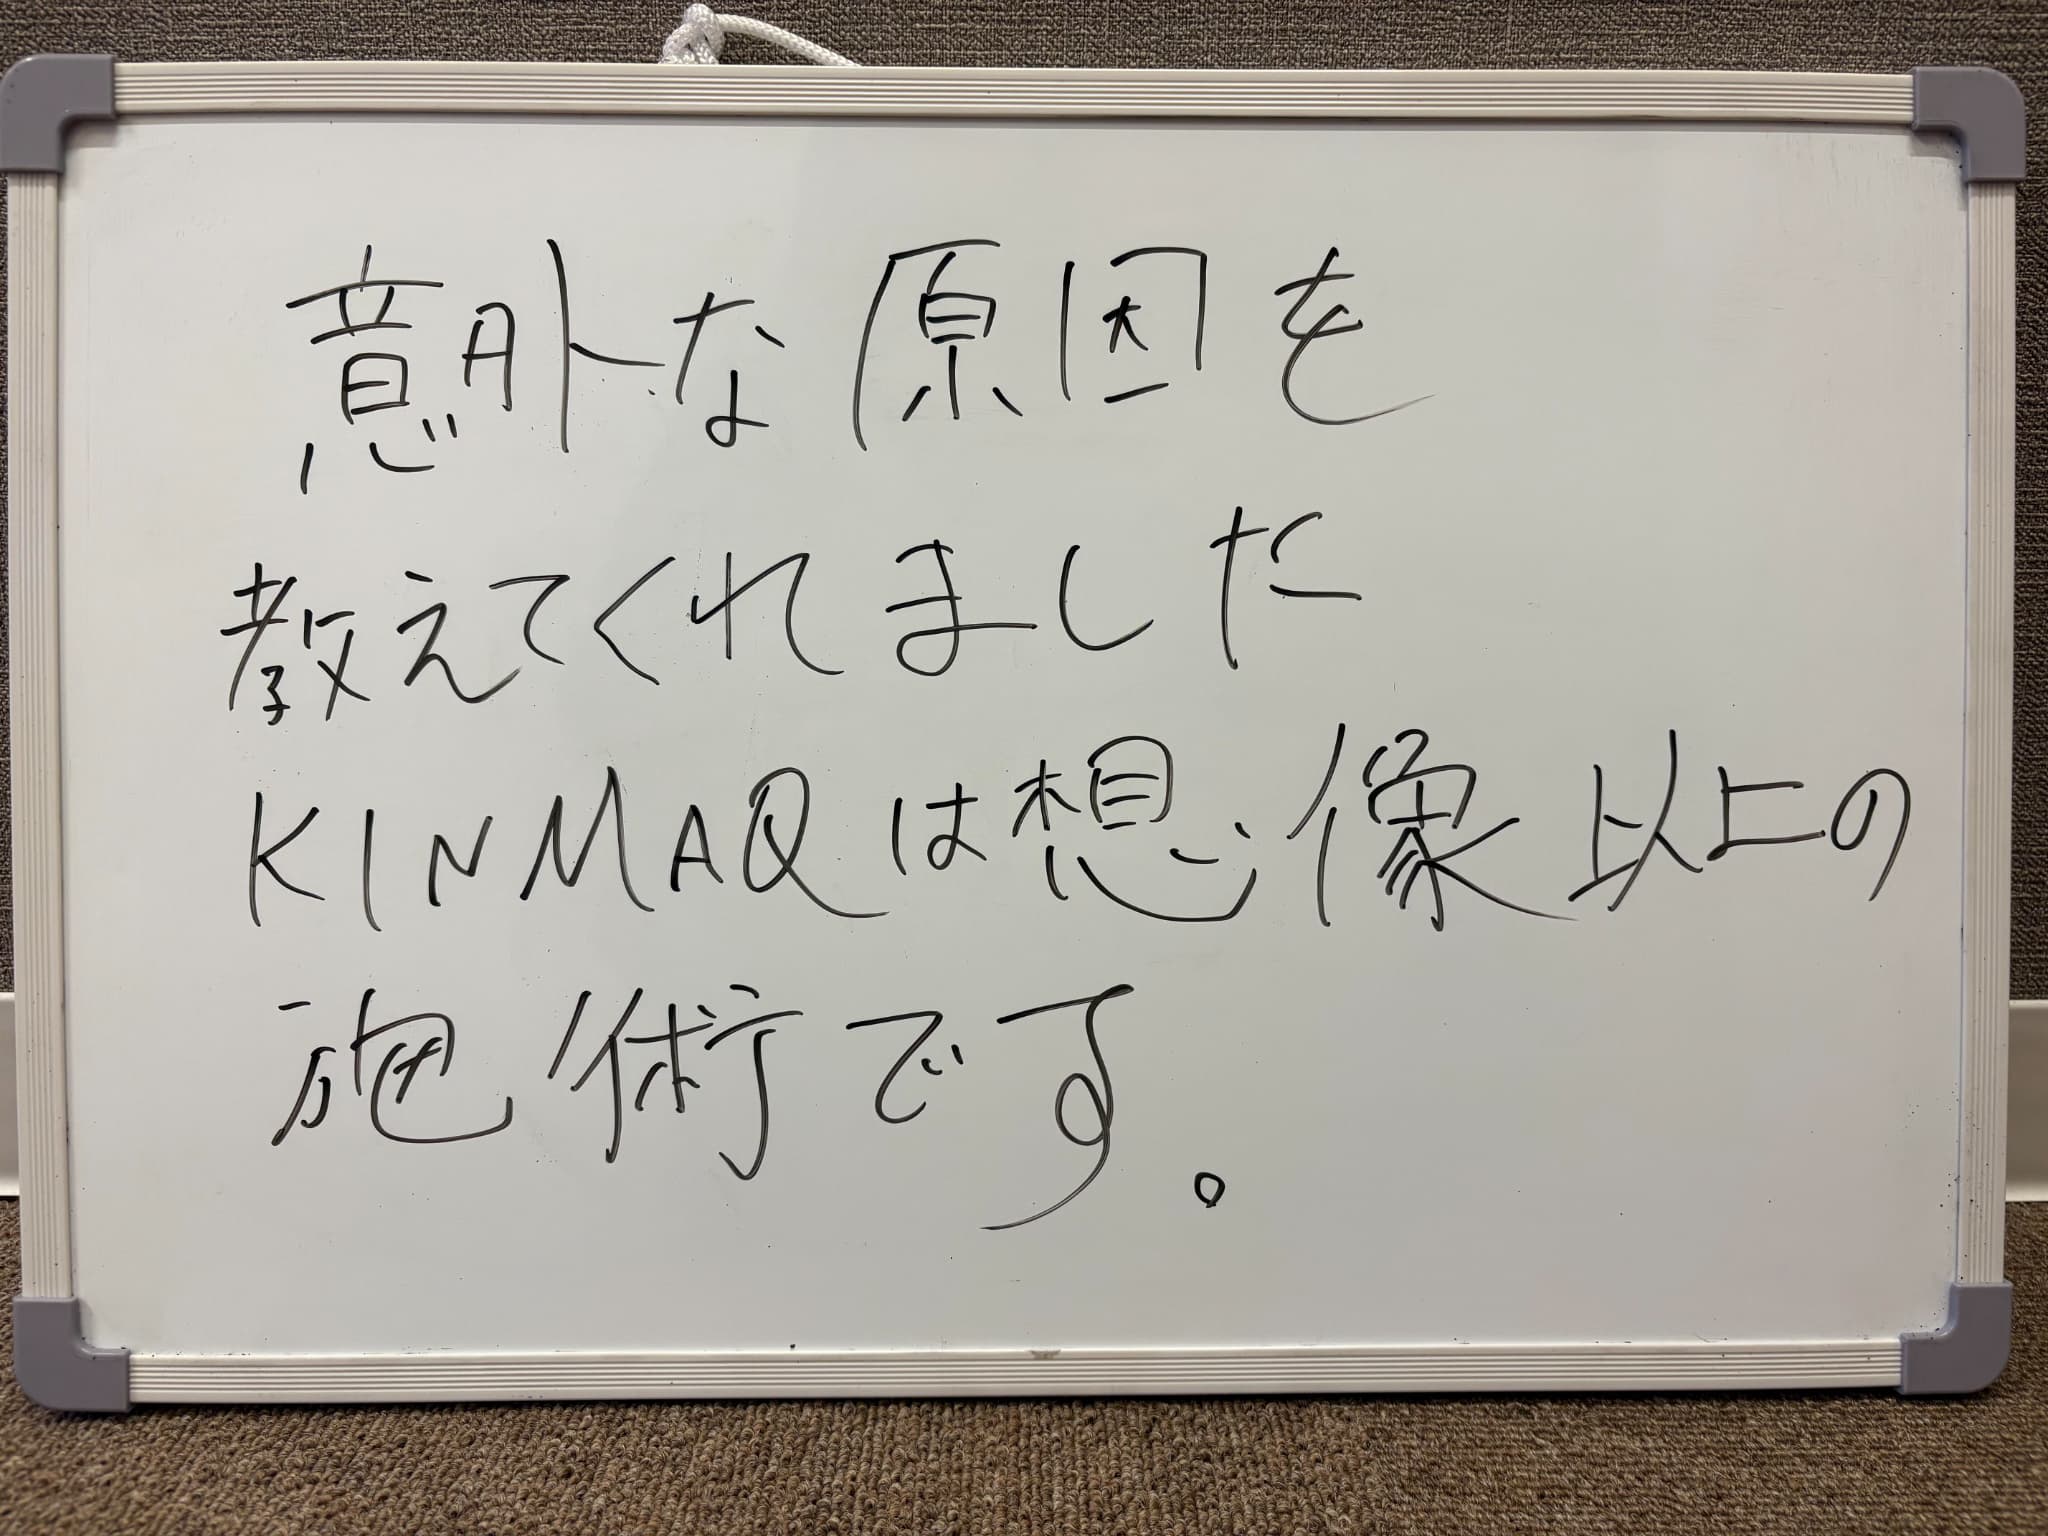 意外な原因を
教えてくれました
KINMAQは想像以上の
施術です。